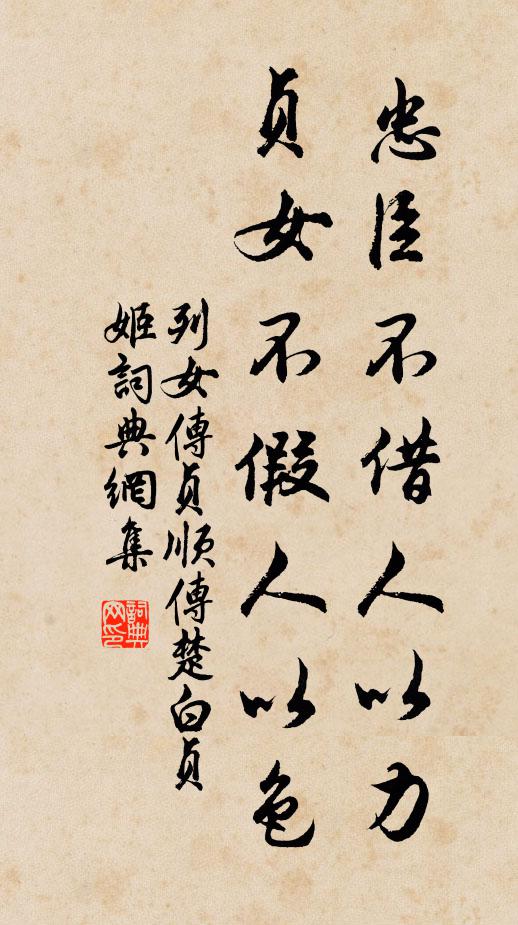 忠臣不借人以力
貞女不假人以色
列女傳貞順傳楚白貞
姬詞典網集
詞典網印